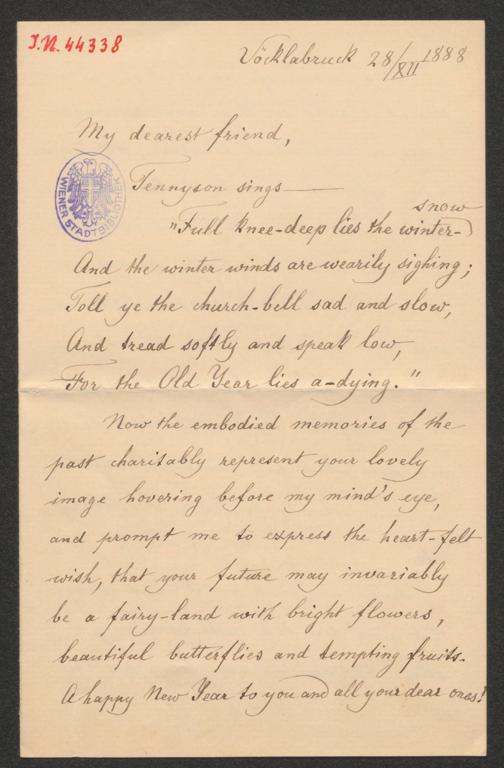 I.N. 44338
Vöcklabruck 28/XII 1888
My dearest friend,
WIENER STADTBIBLIOTHEK
Tennyson sings—
snow
"Full knee-deep lies the winter-
And the winter winds are wearily sighing;
Toll ye the church-bell sad and slow,
And tread softly and speak low,
For the Old Year lies a-dying."
Now the embodied memories of the
past charitably represent your lovely
image hovering before my mind's eye,
and prompt me to express the heart-felt
wish, that your future may invariably
be a fairy-land with bright flowers,
beautiful butterflies and tempting fruits.
A happy New Year to you and all your dear ones!